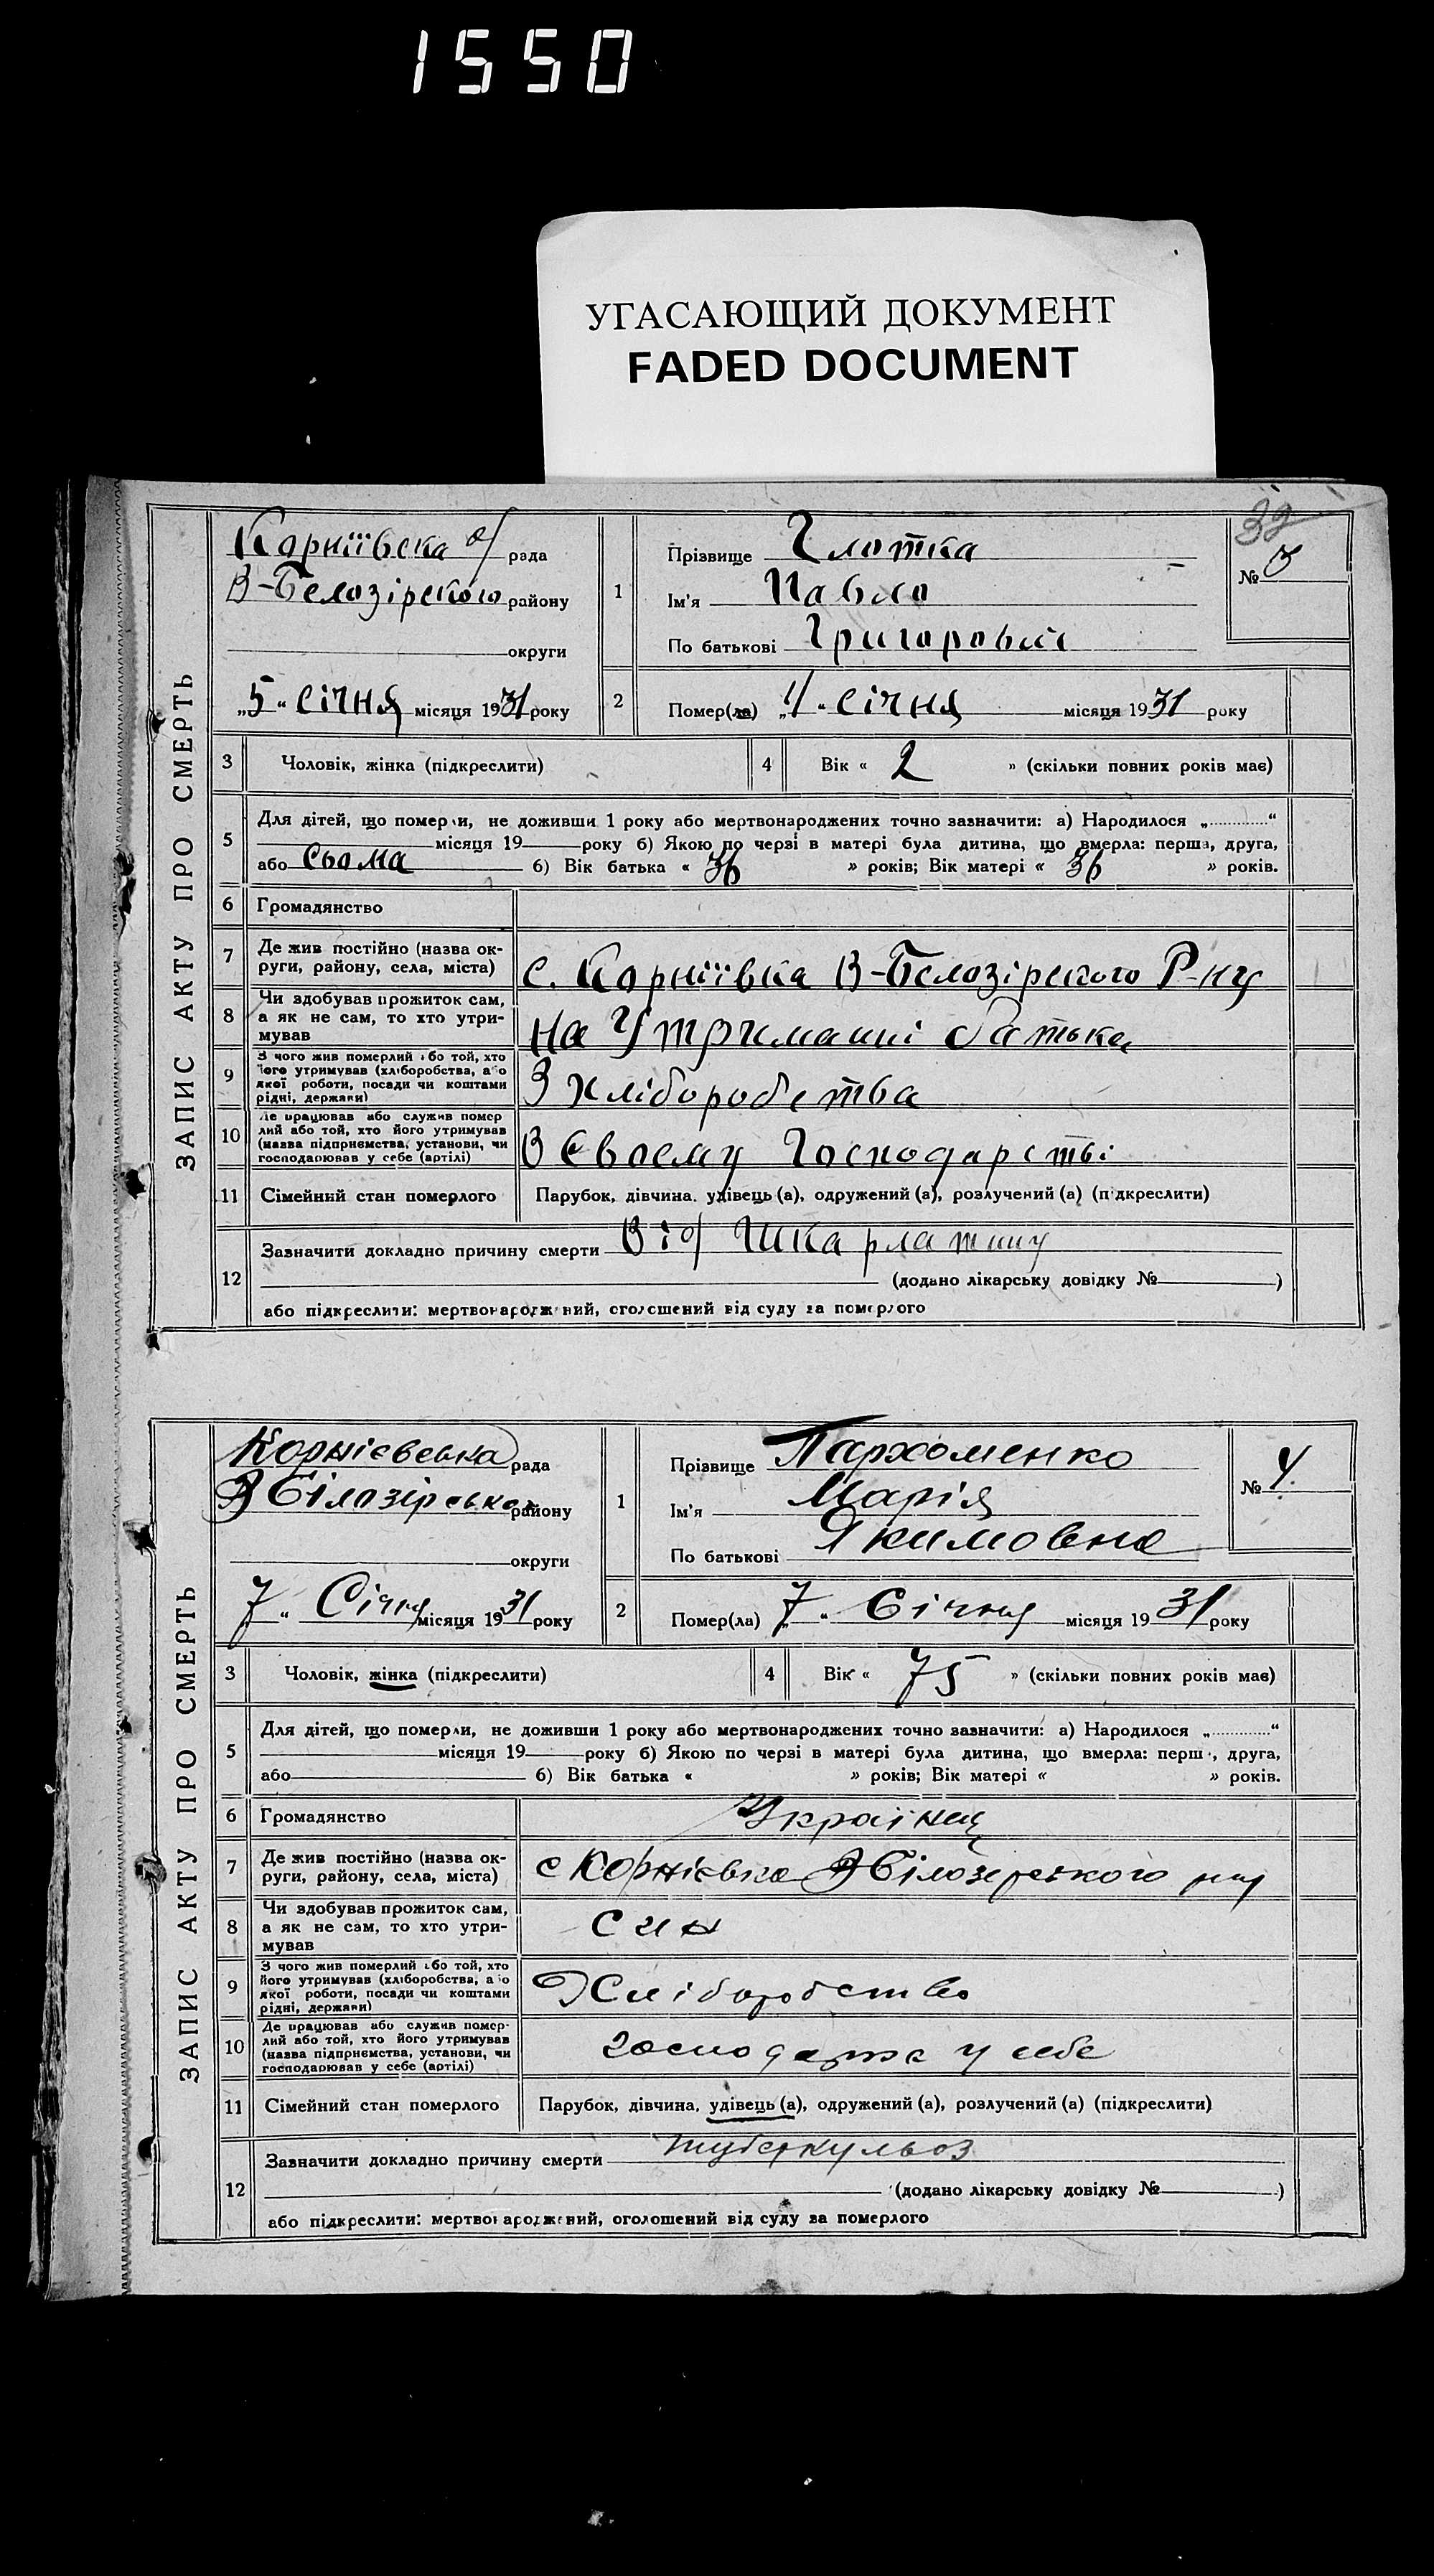 1550
УГАСАЮЩИЙ ДОКУМЕНТ
FADED DOCUMENT
32
ЗАПИС АКТУ ПРО СМЕРТЬ
Корніївска с/ рада
В-Белозірского району
округи
„5“ січня місяця 1931 року
1
Прізвище Глотка
Ім'я Павло
По батькові Григоровий
№ 3
2
Помер(ла) „4“ січня місяця 1931 року
3 Чоловік, жінка (підкреслити)
4 Вік « 2 » (скільки повних років має)
5 Для дітей, що померли, не доживши 1 року або мертвонароджених точно зазначити: а) Народилося „............“
місяця 19 року б) Якою по черзі в матері була дитина, що вмерла: перша, друга,
або сьома б) Вік батька « 36 » років; Вік матері « 36 » років.
6 Громадянство
7 Де жив постійно (назва ок-
руги, району, села, міста)
с. Корніївка В-Белозірского Р-ну
8 Чи здобував прожиток сам,
а як не сам, то хто утри-
мував
на Утриманні батька
9 З чого жив померлий або той, хто
його утримував (хліборобства, або
якої роботи, посади чи коштами
рідні, держави)
З хліборобства
10 Де працював або служив помер
лий або той, хто його утримував
(назва підприємства, установи, чи
господарював у себе (артілі)
В Своему Господарстві
11 Сімейний стан померлого
Парубок, дівчина, удівець (а), одружений (а), розлучений (а) (підкреслити)
12 Зазначити докладно причину смерти Від Шкарлатини
(додано лікарську довідку № )
або підкреслити: мертвонароджений, оголошений від суду за померлого
ЗАПИС АКТУ ПРО СМЕРТЬ
Корнієвська рада
В Білозірська району
округи
7 “ Січня місяця 1931 року
1
Прізвище Пархоменко
Ім'я Марія
По батькові Якимовна
№ 4.
2
Помер(ла) „7“ Січня місяця 1931 року
3 Чоловік, жінка (підкреслити)
4 Вік « 75 » (скільки повних років має)
5 Для дітей, що померли, не доживши 1 року або мертвонароджених точно зазначити: а) Народилося „............“
місяця 19 року б) Якою по черзі в матері була дитина, що вмерла: перш , друга,
або б) Вік батька « » років; Вік матері « » років.
6 Громадянство
Українц
7 Де жив постійно (назва ок-
руги, району, села, міста)
с Корнієвка В Білозерського р-ну
8 Чи здобував прожиток сам,
а як не сам, то хто утри-
мував
син
9 З чого жив померлий або той, хто
його утримував (хліборобства, або
якої роботи, посади чи коштами
рідні, держави)
Хліборобство
10 Де працював або служив помер-
лий або той, хто його утримував
(назва підприємства, установи, чи
господарював у себе (артілі)
господарка у себе
11 Сімейний стан померлого
Парубок, дівчина, удівець (а), одружений (а), розлучений (а) (підкреслити)
12 Зазначити докладно причину смерти туберкульоз
(додано лікарську довідку № )
або підкреслити: мертвонароджений, оголошений від суду за померлого